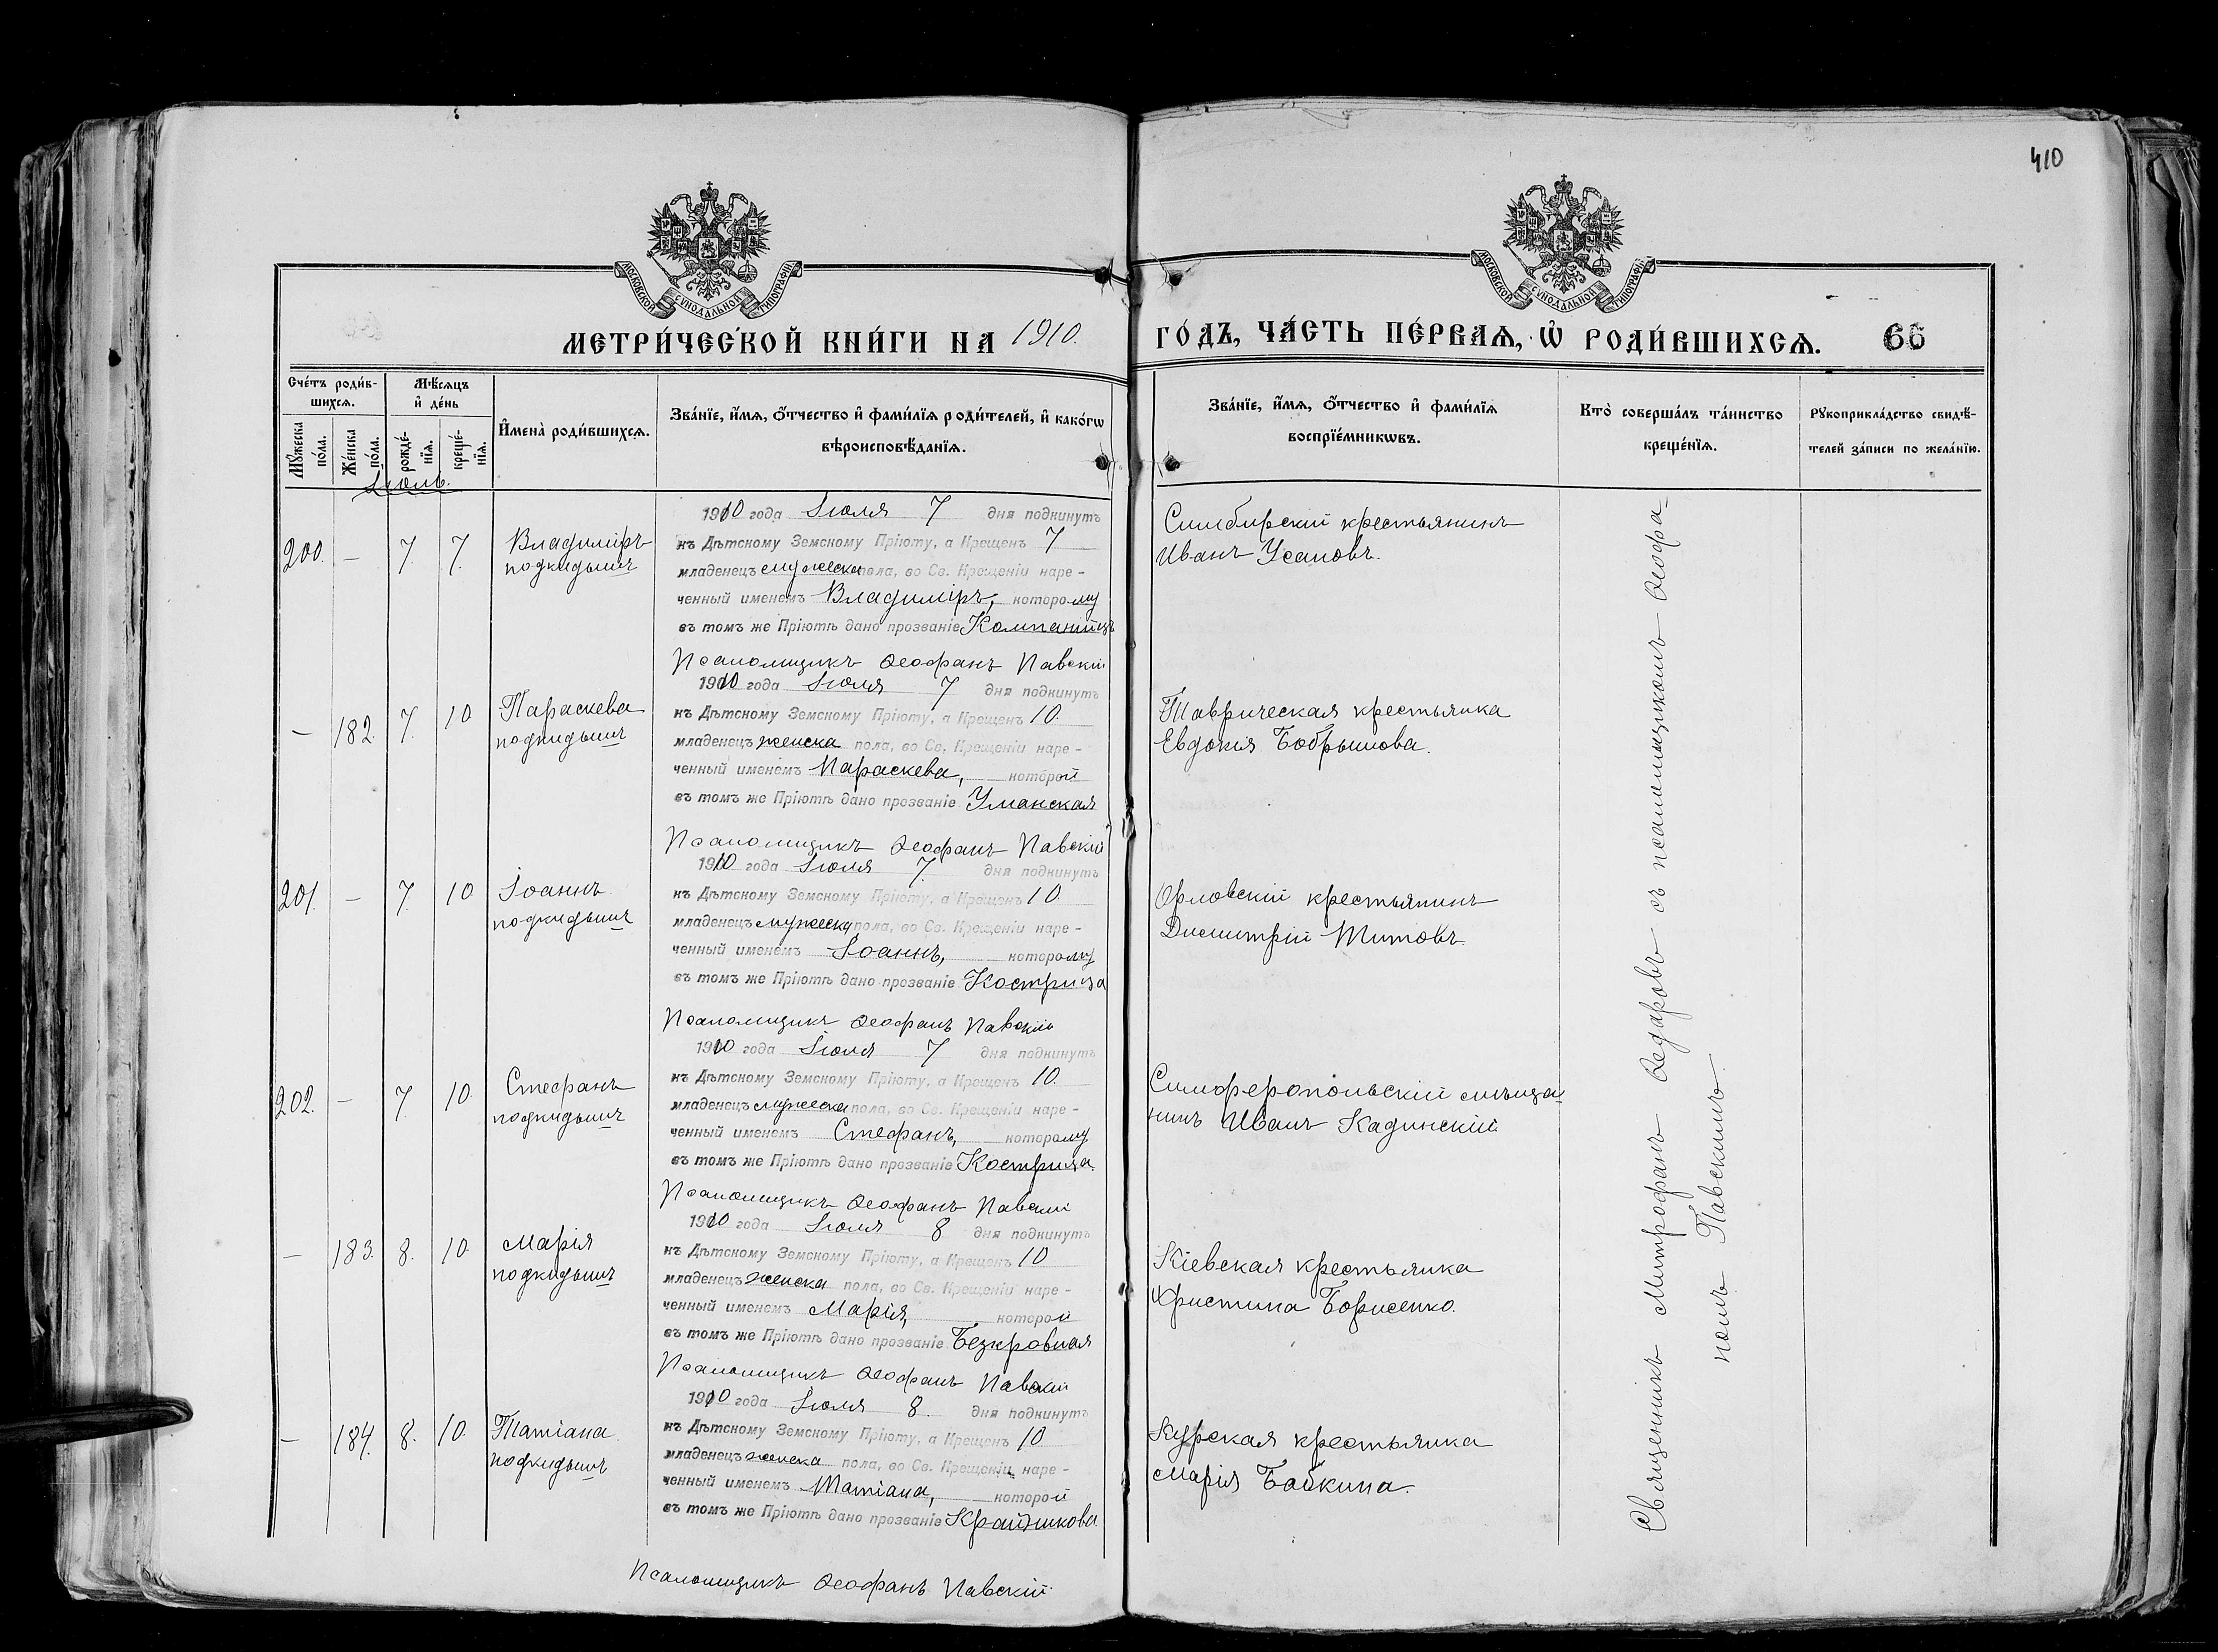 410
МОСКОВСКОЙ СѴНОДАЛЬНОЙ ТИПОГРАФІИ
МОСКОВСКОЙ СѴНОДАЛЬНОЙ ТИПОГРАФІИ
МЕТРИ́ЧЕСКОЙ КНИ́ГИ НА 1910. ГО́ДЪ, ЧА́СТЬ ПЕ́РВАѦ, Ѽ РОДИ́ВШИХСѦ. 66
Сче́тъ роди́в-
шихсѧ.
Мꙋ́жеска по́ла.
Же́нска по́ла.
Мѣ́сѧцъ
и҆ де́нь
рожде́-
нїѧ.
креще́-
нїѧ.
И҆мена̀ роди́вшихсѧ.
Зва́нїе, и҆́мѧ, ѻ҆́тчество и҆ фами́лїѧ роди́телей, и҆ како́гѡ
вѣроисповѣ́данїѧ.
Зва́нїе, и҆́мѧ, ѻ҆́тчество и҆ фами́лїѧ
воспрїе́мникѡвъ.
Кто̀ соверша́лъ та́инство
креще́нїѧ.
Рꙋкоприкла́дство свидѣ́-
телей за́писи по жела́нїю.
Іюль.
200. — 7. 7. Владиміръ
подкидышъ
1910 года Іюля 7 дня подкинутъ
къ Дѣтскому Земскому Пріюту, а Крещенъ 7
младенецъ мужеска пола, во Св. Крещеніи наре-
ченный именемъ Владиміръ, которому
въ томъ же Пріютѣ дано прозваніе Компаніецъ
Псаломщикъ Ѳеофанъ Павскій
Симбирскій крестьянинъ
Иванъ Усановъ.
— 182. 7. 10 Параскева
подкидышъ
1910 года Іюля 7 дня подкинутъ
къ Дѣтскому Земскому Пріюту, а Крещенъ 10.
младенецъ женска пола, во Св. Крещеніи наре-
ченный именемъ Параскева, которой
въ томъ же Пріютѣ дано прозваніе Уманская
Псаломщикъ Ѳеофанъ Павскій
Таврическая крестьянка
Евдокія Бобрышова.
201. — 7. 10 Іоаннъ
подкидышъ
1910 года Іюля 7. дня подкинутъ
къ Дѣтскому Земскому Пріюту, а Крещенъ 10.
младенецъ мужеска пола, во Св. Крещеніи наре-
ченный именемъ Іоаннъ, которому
въ томъ же Пріютѣ дано прозваніе Кострица
Псаломщикъ Ѳеофанъ Павскій
Орловскій крестьянинъ
Димитрій Титовъ.
202. — 7 10 Стефанъ
подкидышъ
1910 года Іюля 7 дня подкинутъ
къ Дѣтскому Земскому Пріюту, а Крещенъ 10.
младенецъ мужеска пола, во Св. Крещеніи наре-
ченный именемъ Стефанъ, которому
въ томъ же Пріютѣ дано прозваніе Кострица.
Псаломщикъ Ѳеофанъ Павскій
Симферопольскій мѣща-
нинъ Иванъ Кадинскій
— 183. 8. 10. Марія
подкидышъ
1910 года Іюля 8 дня подкинутъ
къ Дѣтскому Земскому Пріюту, а Крещенъ 10
младенецъ женска пола, во Св. Крещеніи наре-
ченный именемъ Марія, которой
въ томъ же Пріютѣ дано прозваніе Безкровная
Псаломщикъ Ѳеофанъ Павскій
Кіевская крестьянка
Христина Борисенко.
— 184. 8. 10. Татіана
подкидышъ
1910 года Іюля 8. дня подкинутъ
къ Дѣтскому Земскому Пріюту, а Крещенъ 10
младенецъ женска пола, во Св. Крещеніи наре-
ченный именемъ Татіана, которой
въ томъ же Пріютѣ дано прозваніе Крайникова
Псаломщикъ Ѳеофанъ Павскій
Курская крестьянка
Марія Бабкина.
Священникъ Митрофанъ Ѳедаровъ съ псаломщикомъ Ѳеофа-
номъ Павскимъ.